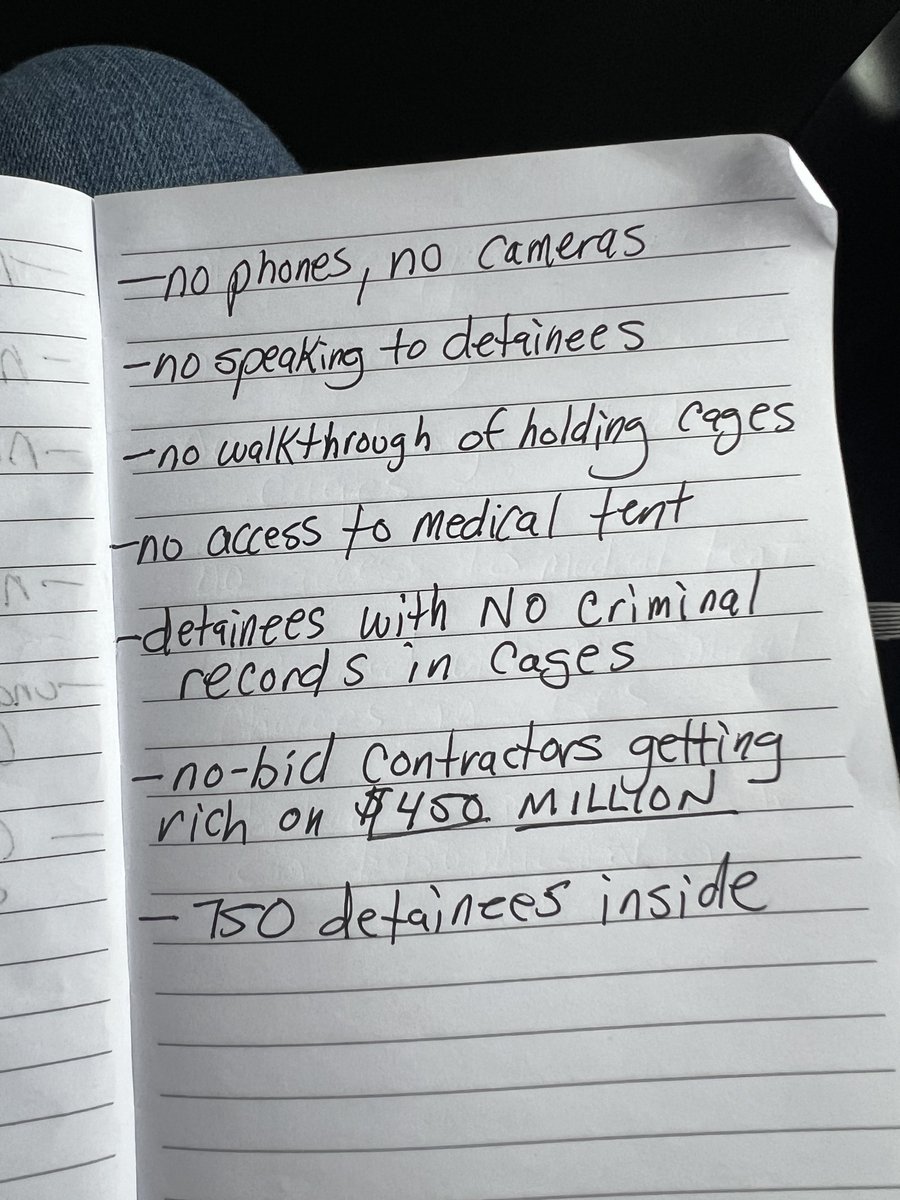 -no phones, no cameras
-no speaking to detainees
-no walkthrough of holding cages
-no access to medical tent
-detainees with NO criminal
records in cages
-no-bid contractors getting
rich on $450 MILLION
- 750 detainees inside